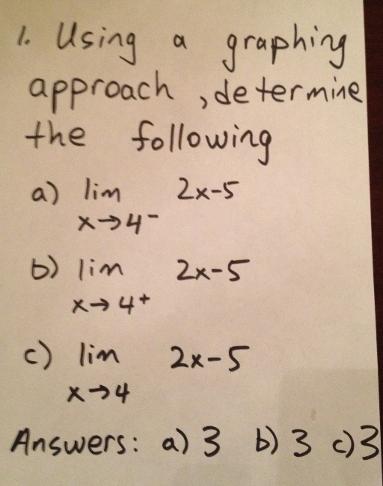 1. Using a graphing
approach, determine
the following
a) lim 2x-5
x→4⁻
b) lim 2x-5
x→4⁺
c) lim 2x-5
x→4
Answers: a) 3 b) 3 c) 3